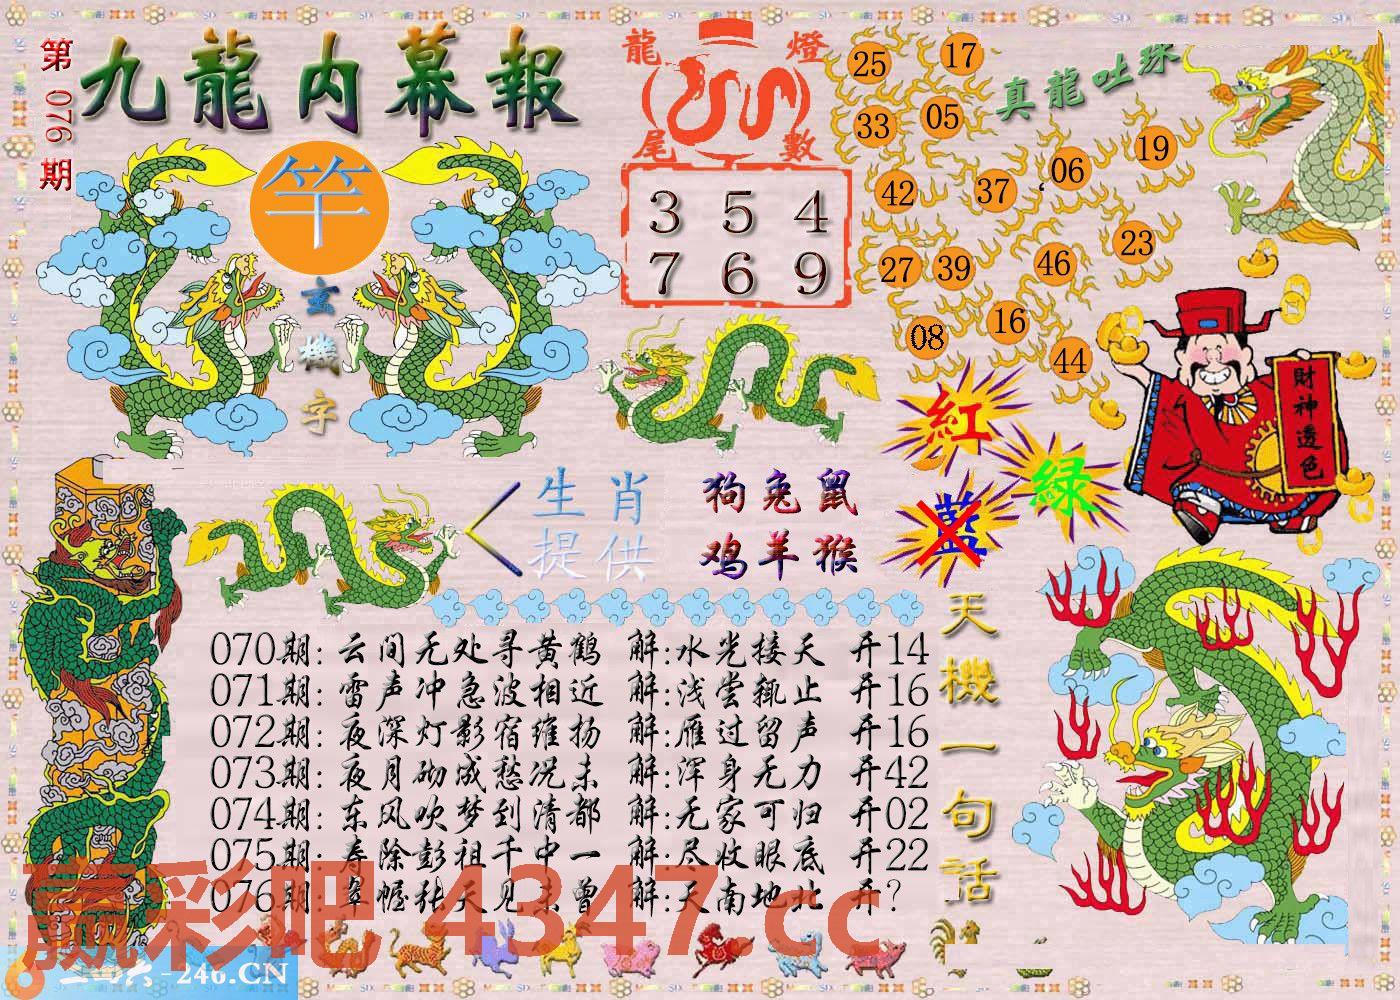 第076期
九龍内幕報
竿
玄機字
龍燈
尾數
3 5 4
7 6 9
真龍吐珠
25 17
33 05
42 37 06 19
27 39 46 23
08 16 44
財神透色
紅
綠
藍
生肖 狗兔鼠
提供 鸡羊猴
天機一句話
070期: 云间无处寻黄鹤 解:水光接天 开14
071期: 雷声冲急波相近 解:浅尝辄止 开16
072期: 夜深灯影宿维扬 解:雁过留声 开16
073期: 夜月砌成愁况未 解:浑身无力 开42
074期: 东风吹梦到清都 解:无家可归 开02
075期: 寿除彭祖千中一 解:尽收眼底 开22
076期: 翠幄张天见未曾 解:天南地北 开?
赢彩吧 4347.cc
二四六-246.CN